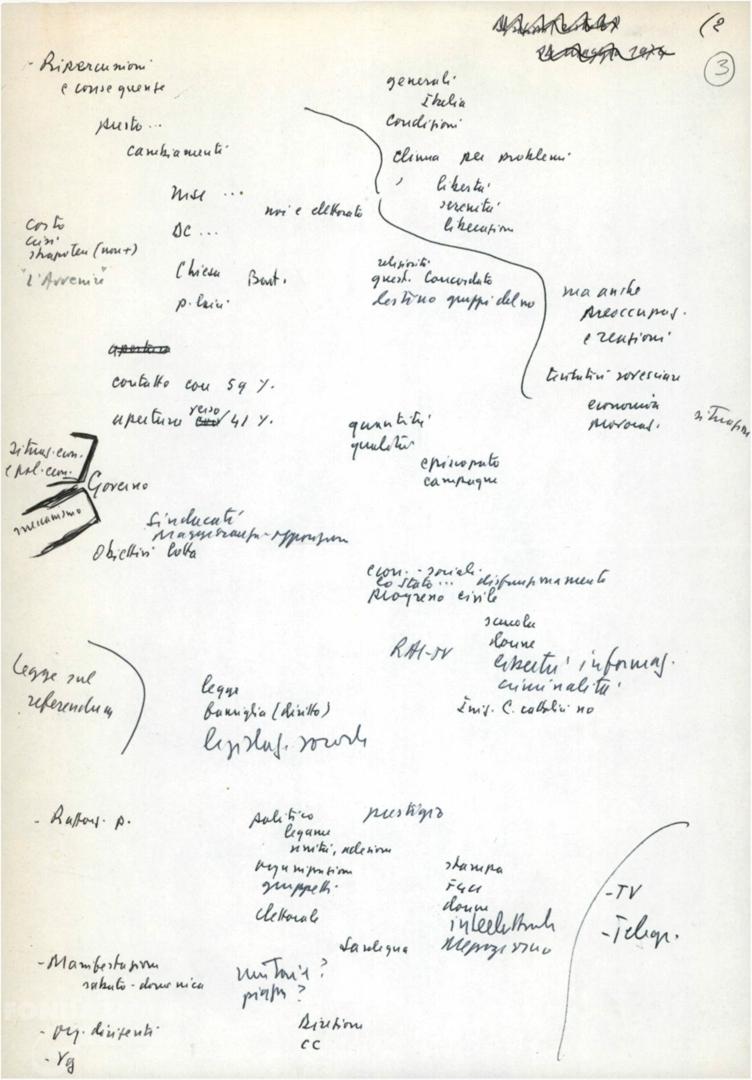 (2
3
- Ripercussioni
e conseguenze
generali
Italia
condizioni
presto...
cambiamenti
clima per problemi
libertà
serenità
MSI ...
noi e elettorato
DC ...
costo
crisi
strapotere (non +)
"L'Avvenire"
Chiesa Bent.
religiosità
quest. Concordato
p. laici
gruppi del no
ma anche
preoccupaz.
e reazioni
tentativi rovesciare
economia
apertura
contatto con 59 %.
apertura verso 41 %.
quantità
qualità
episcopato
campagne
situaz. econ.
e pol. econ.
Governo
meccanismo
Sindacati
Maggioranza - opposizione
Obiettivi lotta
econ. - sociali
lo stato ... disfunzionamento
progresso civile
scuola
donne
RAI-TV
libertà informaz.
criminalità
C. cattolici no
Legge sul
referendum
legge
famiglia (diritto)
legislaz.
- Rafforz. p.
politico prestigio
legame
unità, adesione
organizzazione
gruppetti
stampa
FGCI
donne
elettorale
intellettuali
Sardegna Mezzogiorno
- TV
- Telegr.
- Manifestazioni
sabato - domenica
unitarie?
piazza?
- org. dirigenti
Direzione
CC
- Vg